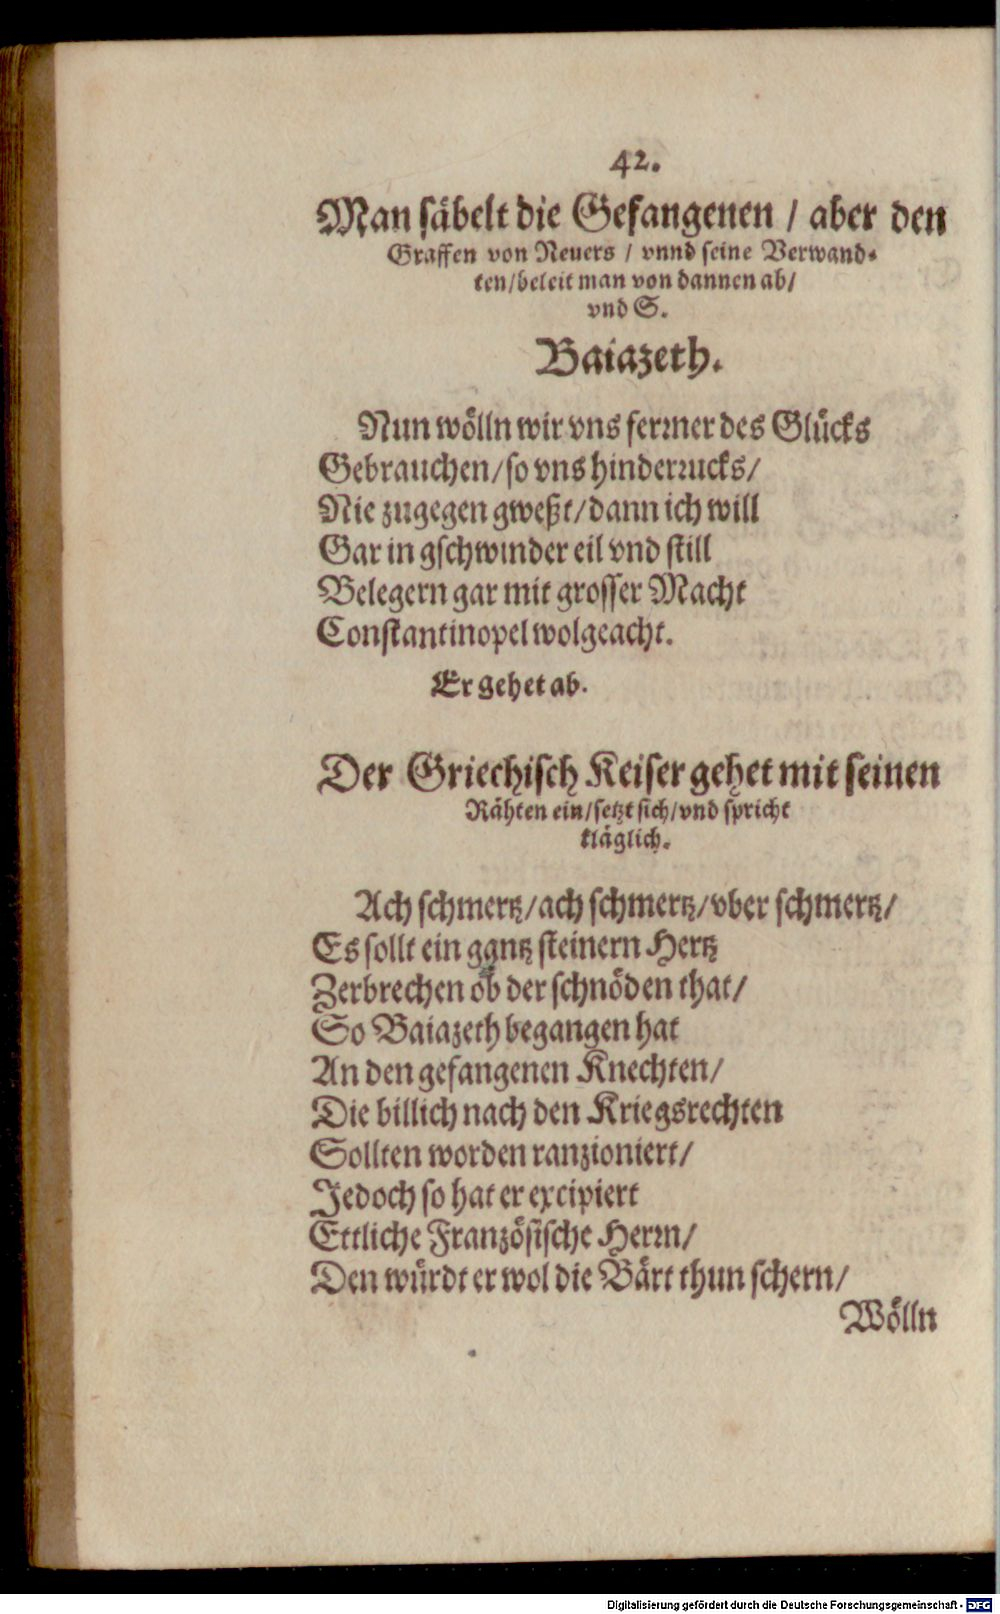 42.
Man säbelt die Gefangenen / aber den
Graffen von Nevers / vnnd seine Verwand-
ten/beleit man von dannen ab/
vnd S.
Baiazeth.
Nun wölln wir vns ferrner des Glücks
Gebrauchen/so vns hinderrucks/
Nie zugegen gweßt/dann ich will
Gar in gschwinder eil vnd still
Belegern gar mit grosser Macht
Constantinopel wolgeacht.
Er gehet ab.
Der Griechisch Keiser gehet mit seinen
Rähten ein/setzt sich/vnd spricht
kläglich.
Ach schmertz/ach schmertz/vber schmertz/
Es sollt ein ggntz steinern Hertz
Zerbrechen ob der schnöden that/
So Baiazeth begangen hat
An den gefangenen Knechten/
Die billich nach den Kriegsrechten
Sollten worden ranzioniert/
Jedoch so hat er excipiert
Ettliche Französische Herrn/
Den würdt er wol die Bärt thun schern/
Wölln
Digitalisierung gefördert durch die Deutsche Forschungsgemeinschaft - DFG